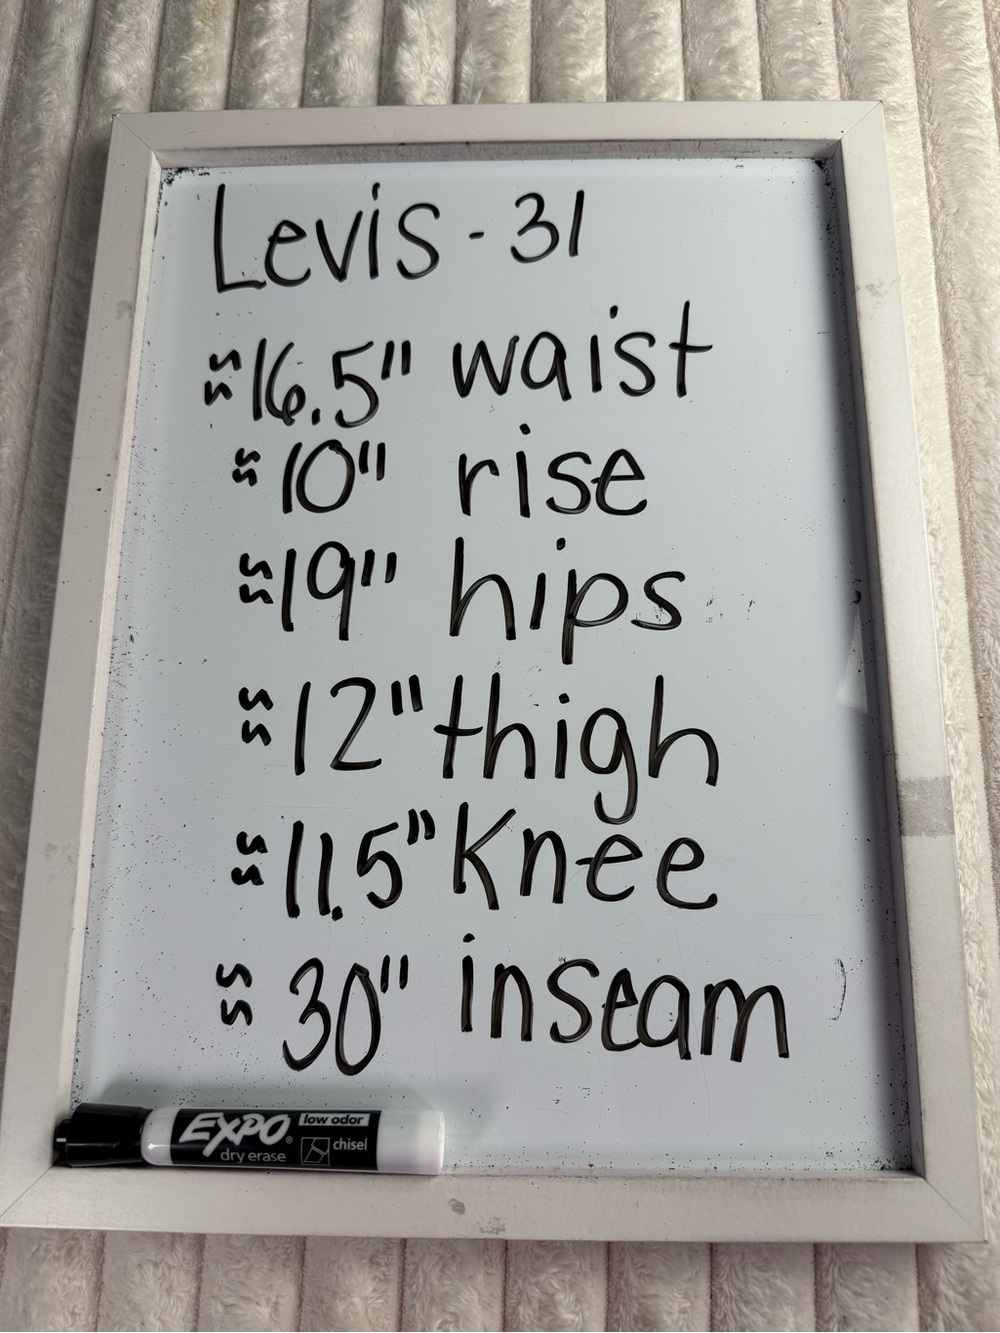 Levis - 31
≈16.5" waist
≈10" rise
≈19" hips
≈12" thigh
≈11.5" Knee
≈30" inseam
EXPO® low odor
dry erase chisel